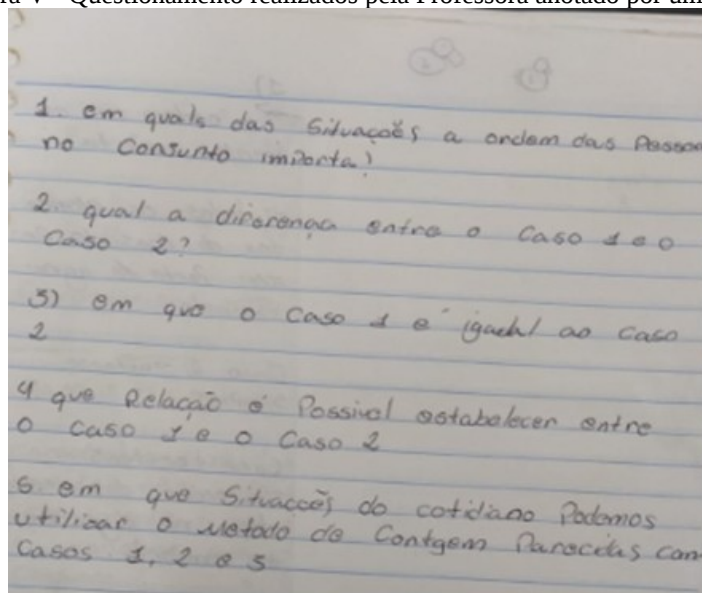 Questionamento realizados pela Professora anotado por um
1. em quals das Situaçoēs a ordem das Pessoa
no Consunto importa?
2. qual a diferença entre o Caso 1 e o
Caso 2?
3) em que o Caso 1 e igual ao Caso
2
4 que Relaçaõ é Possivel estabelecer entre
o caso 1 e o Caso 2
5 em que Situaccēs do cotidiano Podemos
utilizar o Metodo de Contgem Parecidas com
Casos 1, 2 e 3